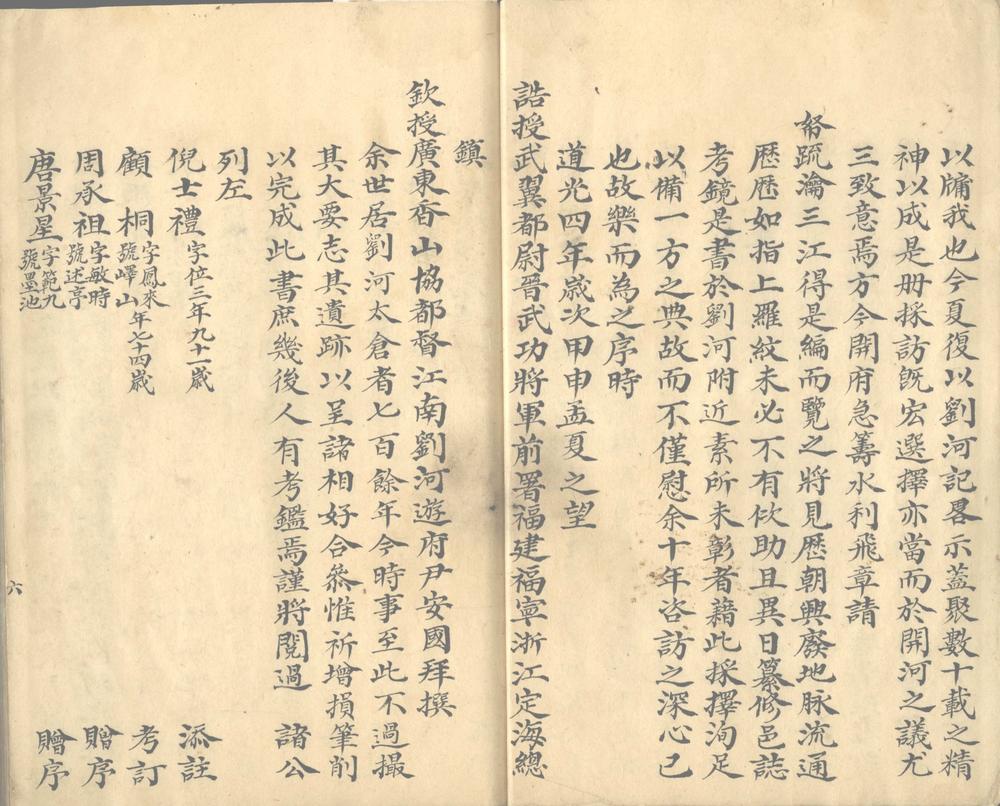 以牖我也今夏復以劉河記畧示葢聚數十載之精
神以成是册採訪旣宏選擇亦當而於開河之議尤
三致意焉方今開府急籌水利飛章請
帑疏瀹三江得是編而覽之將見歷朝興廢地脉流通
歷歷如指上羅紋未必不有佽助且異日纂修邑誌
考鏡是書於劉河附近素所未彰者藉此採擇洵足
以備一方之典故而不僅慰余十年咨訪之深心已
也故樂而為之序時
道光四年歲次甲申孟夏之望
誥授武翼都尉晉武功將軍前署福建福寧浙江定海總
鎮
欽授廣東香山協都督江南劉河遊府尹安國拜撰
余世居劉河太倉者七百餘年今時事至此不過撮
其大要志其遺跡以呈諸相好合叅惟祈增損筆削
以完成此書庶幾後人有考鑑焉謹將閱過 諸公
列左
倪士禮 字位三年九十一歲 添註
顧 桐 字鳳來 號嶧山年七十四歲 考訂
周承祖 字敏時 號述亭 贈序
唐景星 字範九 號墨池 贈序
六